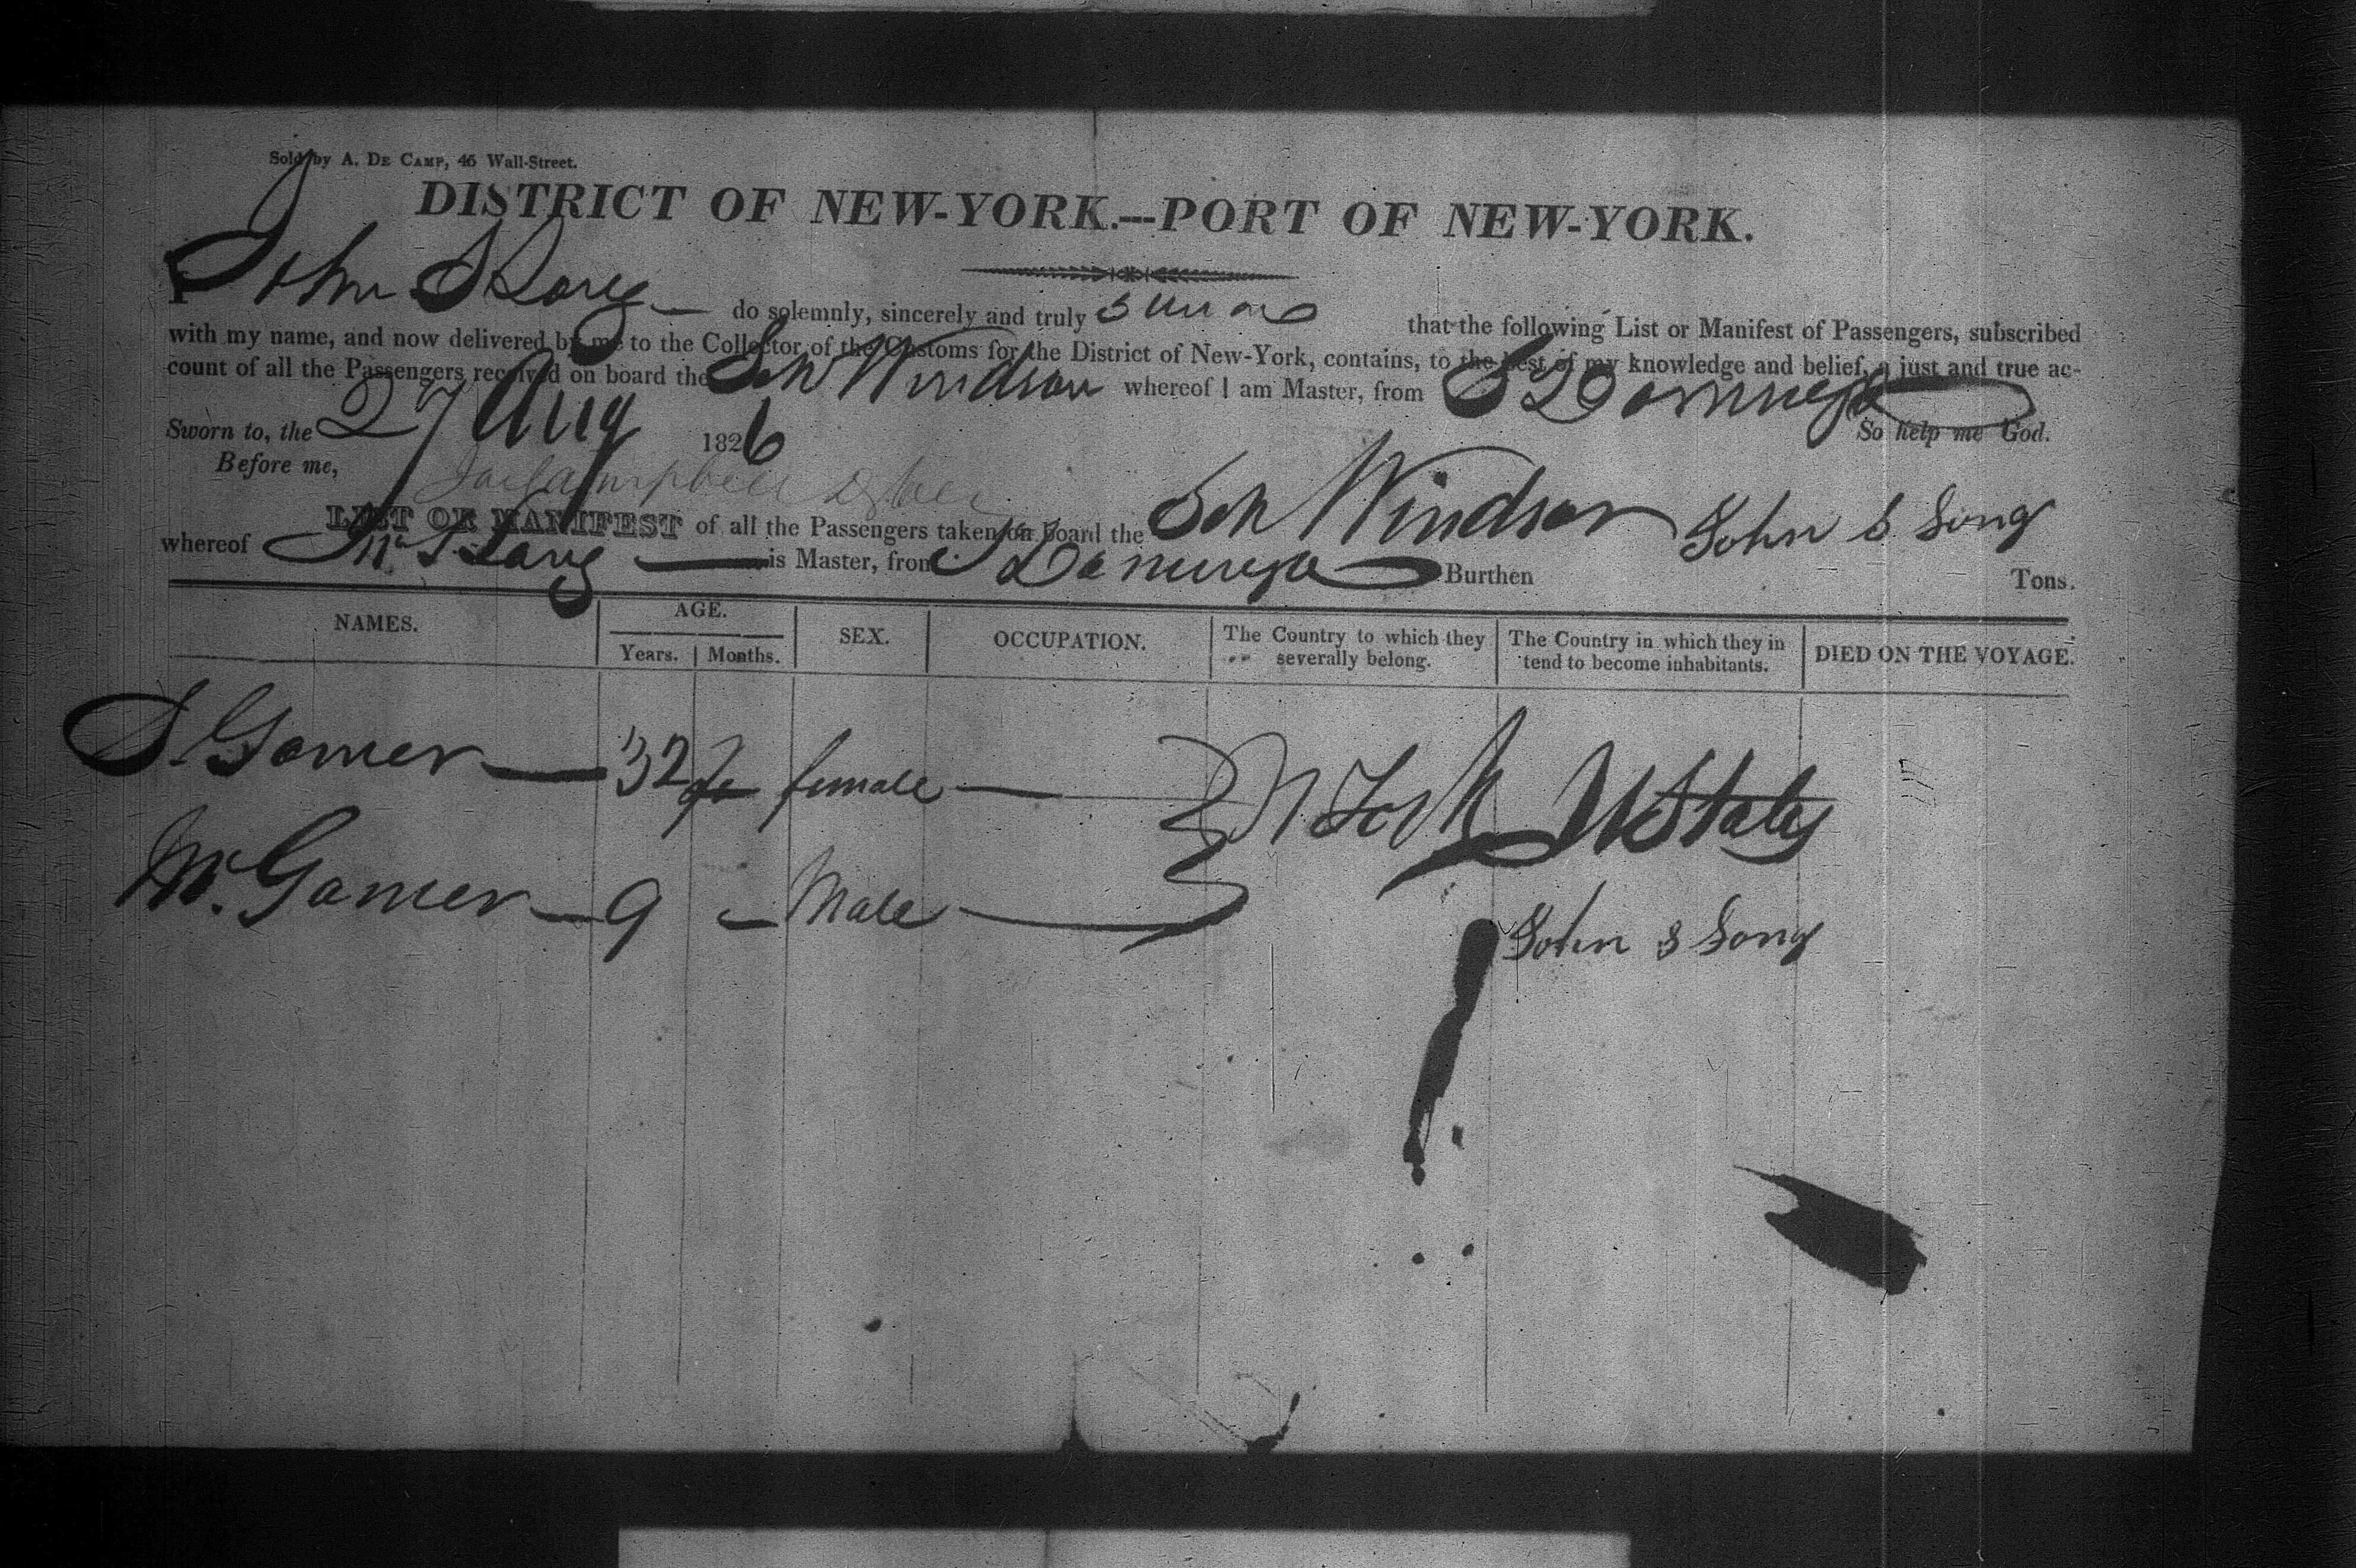 Sold by A. De Camp, 46 Wall-Street.
DISTRICT OF NEW-YORK.--PORT OF NEW-YORK.
I John S Long do solemnly, sincerely and truly swear that the following List or Manifest of Passengers, subscribed
with my name, and now delivered by me to the Collector of the Customs for the District of New-York, contains, to the best of my knowledge and belief, a just and true ac-
count of all the Passengers received on board the Sch Windsor whereof I am Master, from St Domingo
Sworn to, the 27 Aug 1826 So help me God.
Before me,
LIST OR MANIFEST of all the Passengers taken on board the Sch Windsor John S Long
whereof Jno S Long is Master, from St Domingo Burthen Tons.
NAMES. AGE. SEX. OCCUPATION. The Country to which they severally belong. The Country in which they in tend to become inhabitants. DIED ON THE VOYAGE.
Years. Months.
S. Gomer 32 female N York U States
M. Gomer 9 Male
John S Long